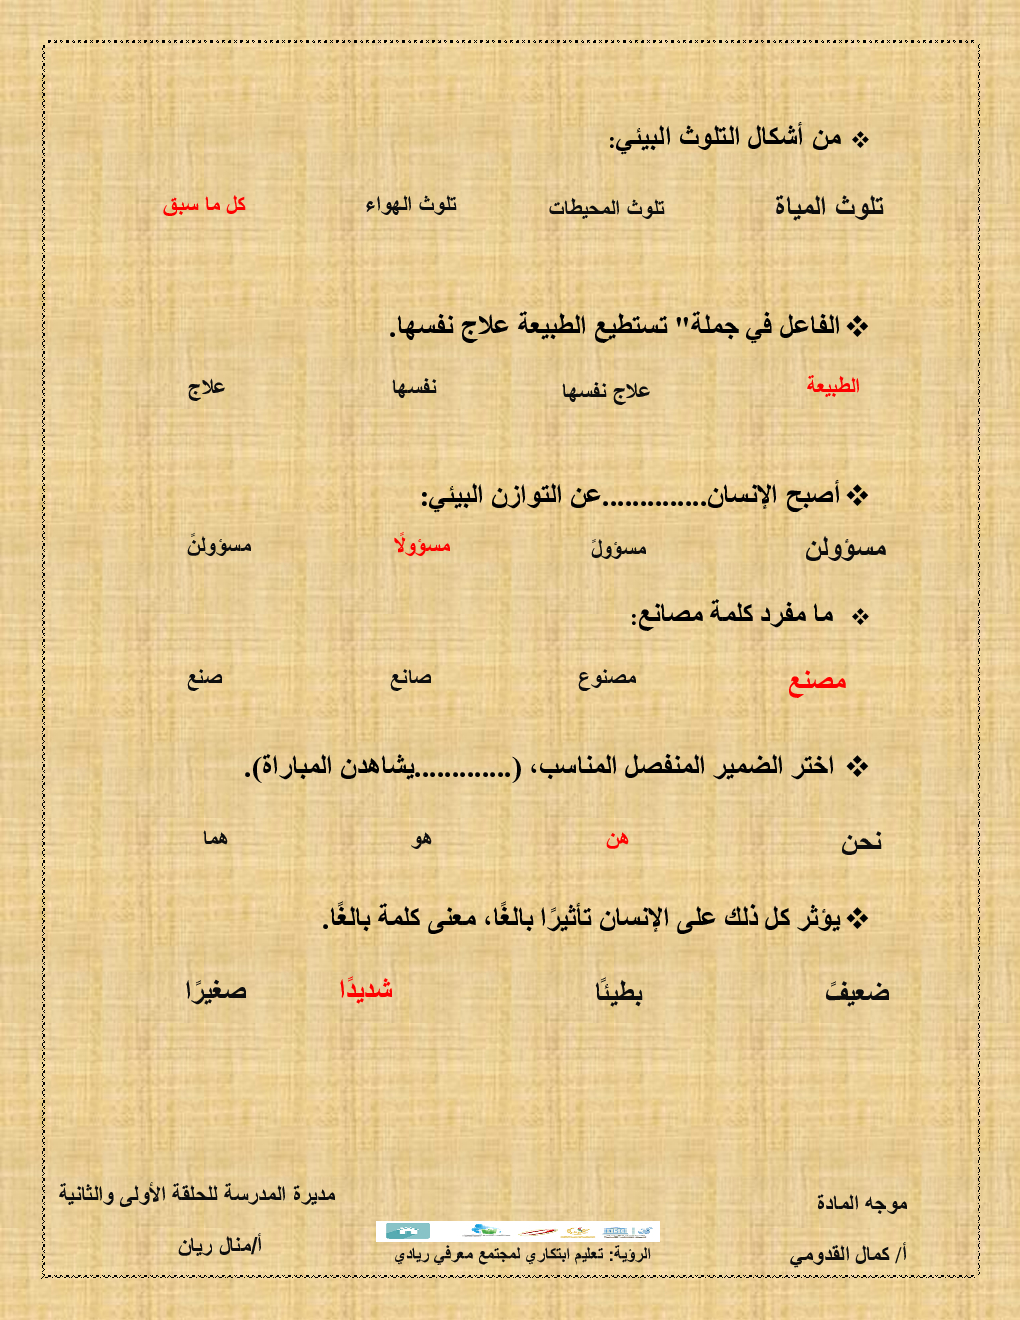 ❖ من أشكال التلوث البيئي:
تلوث المياة تلوث المحيطات تلوث الهواء كل ما سبق
❖ الفاعل في جملة" تستطيع الطبيعة علاج نفسها.
الطبيعة علاج نفسها نفسها علاج
❖ أصبح الإنسان..............عن التوازن البيئي:
مسؤولن مسؤولً مسؤولًا مسؤولنً
❖ ما مفرد كلمة مصانع:
مصنع مصنوع صانع صنع
❖ اختر الضمير المنفصل المناسب، (.............يشاهدن المباراة).
نحن هن هو هما
❖ يؤثر كل ذلك على الإنسان تأثيرًا بالغًا، معنى كلمة بالغًا.
ضعيفً بطيئًا شديدًا صغيرًا
موجه المادة مديرة المدرسة للحلقة الأولى والثانية
أ/ كمال القدومي الرؤية: تعليم ابتكاري لمجتمع معرفي ريادي أ/منال ريان